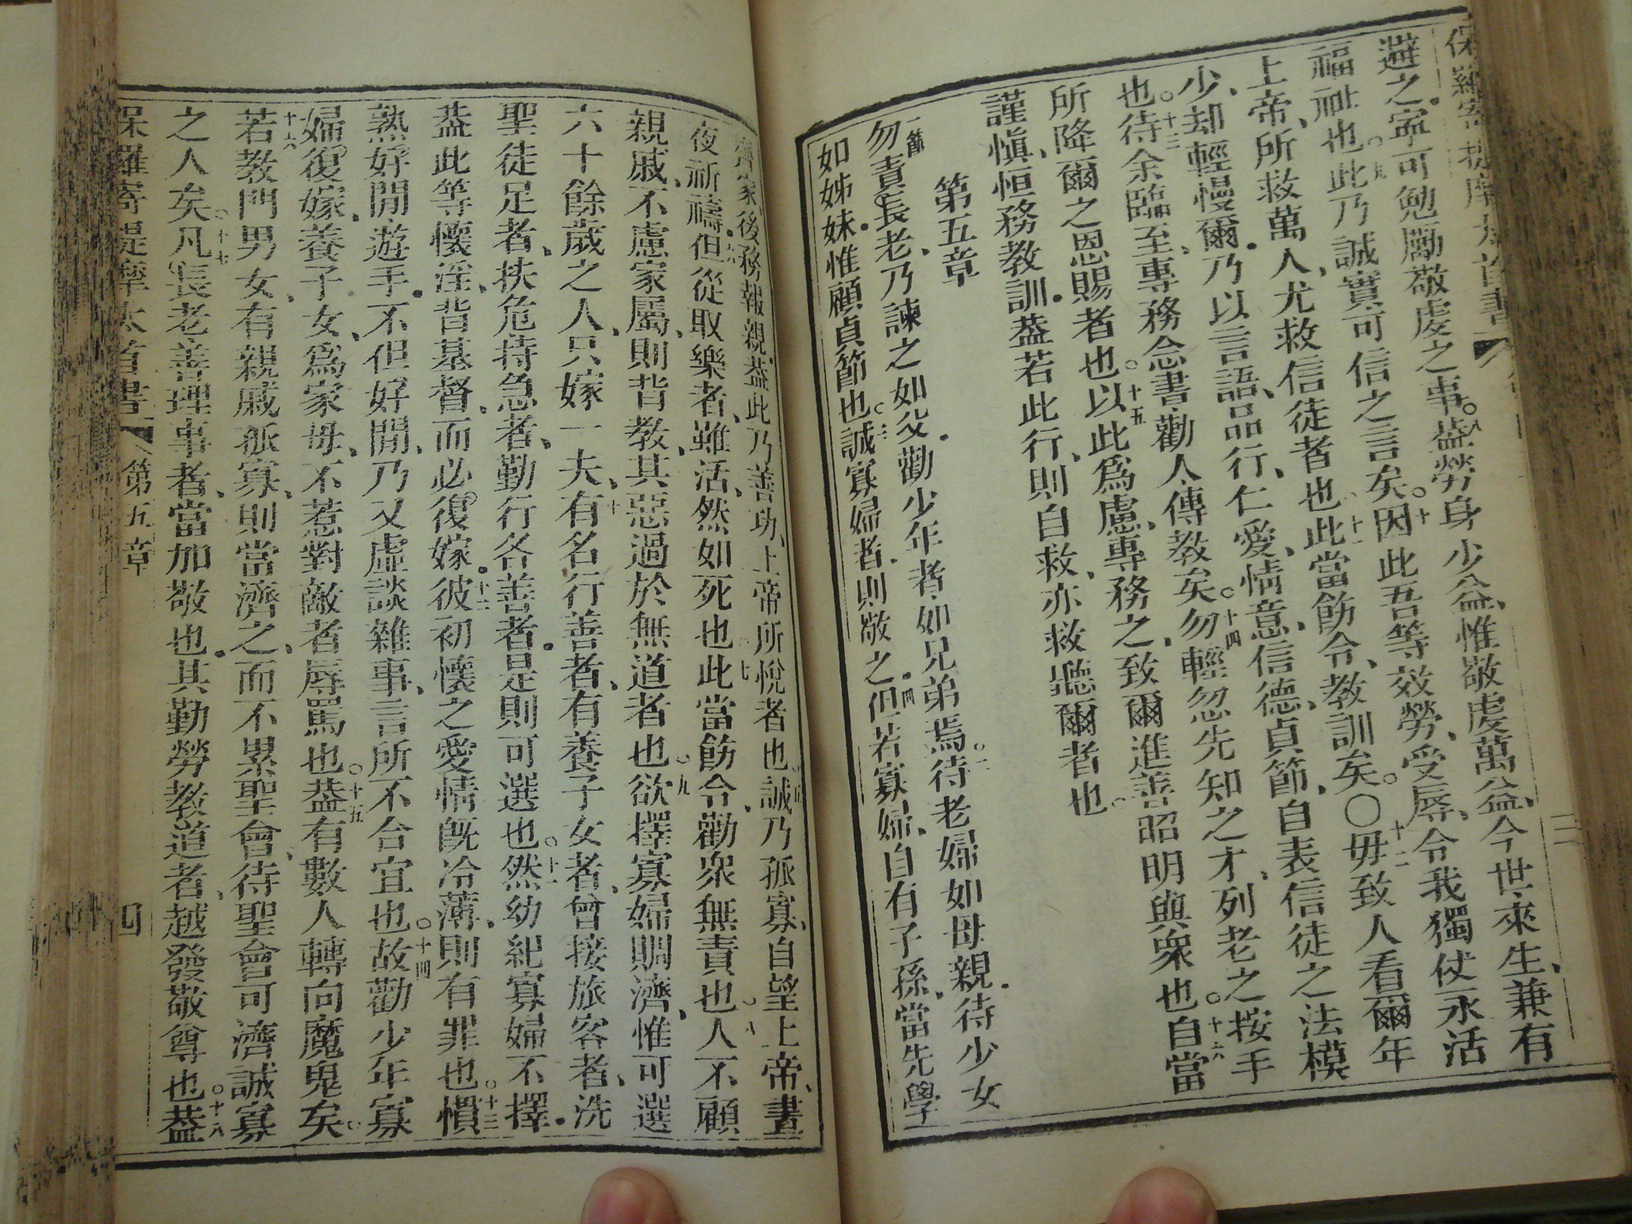 避之寧可勉勵敬虔之事蓋勞身少益惟敬虔萬益今世來生兼有
福祉也九此乃誠實可信之言矣十因此吾等效勞受辱令我獨仗永活
上帝所救萬人尤救信徒者也十一此當飭令教訓矣〇十二毋致人看爾年
少却輕慢爾乃以言語品行仁愛情意信德貞節自表信徒之法模
也十三待余臨至專務念書勸人傳教矣十四勿輕忽先知之才列老之按手
所降爾之恩賜者也十五以此為慮專務之致爾進善昭明與眾也十六自當
謹慎恒務教訓蓋若此行則自救亦救聽爾者也
第五章
一節勿責長老乃諫之如父勸少年者如兄弟焉二待老婦如母親待少女
如姊妹惟顧貞節也三誠寡婦者則敬之四但若寡婦自有子孫當先學
齊家後務報親蓋此乃善功上帝所悅者也五誠乃孤寡自望上帝晝
夜祈禱六但從取樂者雖活然如死也七此當飭令勸眾無責也八人不顧
親戚不慮家屬則背教其惡過於無道者也九欲擇寡婦賙濟惟可選
六十餘歲之人只嫁一夫十有名行善者有養子女者曾接旅客者洗
聖徒足者扶危持急者勤行各善者是則可選也十一然幼紀寡婦不擇
蓋此等懷淫背基督而必復嫁十二彼初懷之愛情既冷薄則有罪也十三慣
熟好閒遊手不但好閒乃又虛談雜事言所不合宜也十四故勸少年寡
婦復嫁養子女為家毋不惹對敵者辱罵也十五蓋有數人轉向魔鬼矣
十六若教門男女有親戚孤寡則當濟之而不累聖會待聖會可濟誠寡
之人矣十七凡長老善理事者當加敬也其勤勞教道者越發敬尊也十八蓋
保羅寄提摩太首書 第五章 四